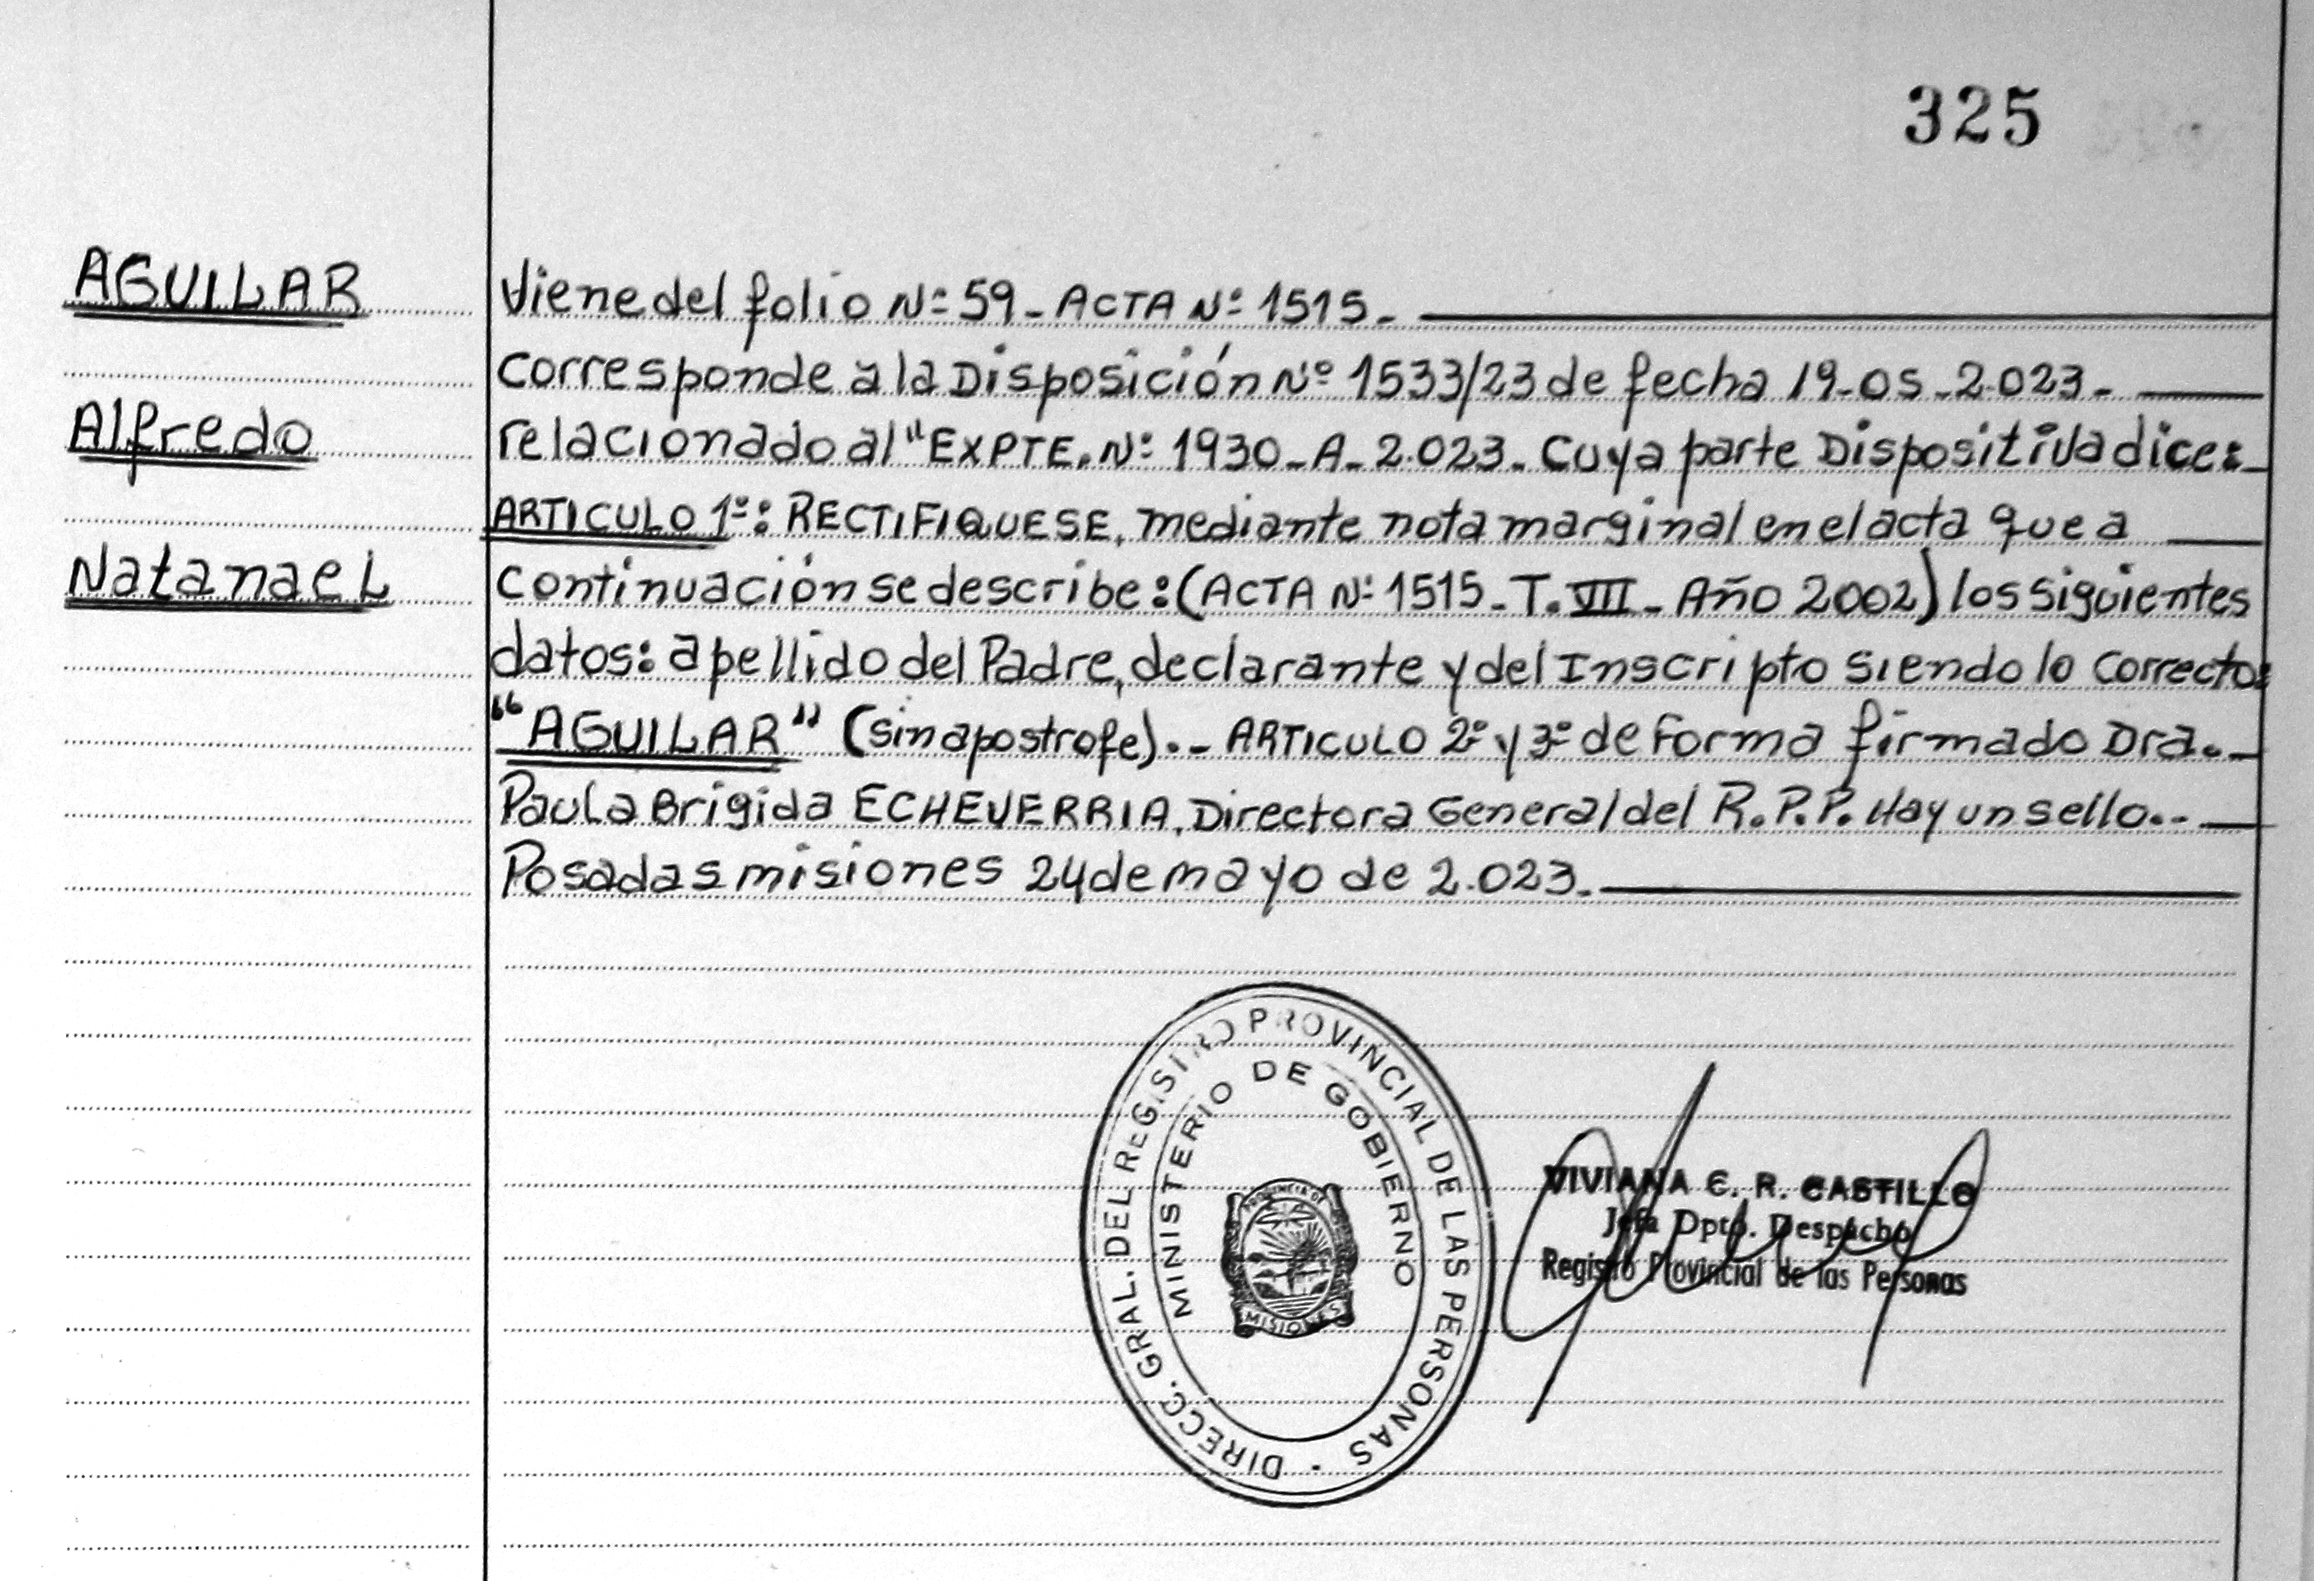 325
AGUILAR
Alfredo
Natanael
Viene del folio Nº 59_ ACTA Nº 1515_
Corresponde a la Disposición Nº 1533/23 de fecha 19_05_2.023_
relacionado al "EXPTE. Nº 1930_A_2.023_ Cuya parte Dispositiva dice:
ARTICULO 1º: RECTIFIQUESE, mediante nota marginal en el acta que a
Continuación se describe: (ACTA Nº 1515_T. VII_ Año 2002) los siguientes
datos: apellido del Padre, declarante y del Inscripto siendo lo Correcto:
"AGUILAR" (sin apostrofe)._ ARTICULO 2º y 3º de Forma firmado Dra._
Paula Brigida ECHEVERRIA, Directora General del R.P.P. Hay un sello._
Posadas misiones 24 de mayo de 2.023_
DIRECC. GRAL. DEL REGISTRO PROVINCIAL DE LAS PERSONAS
MINISTERIO DE GOBIERNO
PROVINCIA DE
MISIONES
VIVIANA C. R. CASTILLO
Jefa Dpto. Despacho
Registro Provincial de las Personas